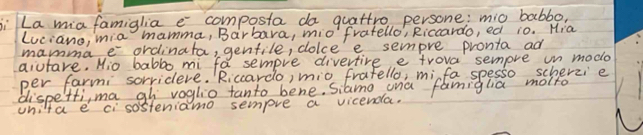 La mia famiglia è composta da quattro persone: mio babbo,
Luciano, mia mamma, Barbara, mio fratello, Riccardo, ed io. Mia
mamma è ordinata, gentile, dolce e sempre pronta ad
aiutare. Mio babbo mi fa sempre divertire e trova sempre un modo
per farmi sorridere. Riccardo, mio fratello, mi fa spesso scherzi e
dispetti, ma gli voglio tanto bene. Siamo una famiglia molto
unita e ci sosteniamo sempre a vicenda.